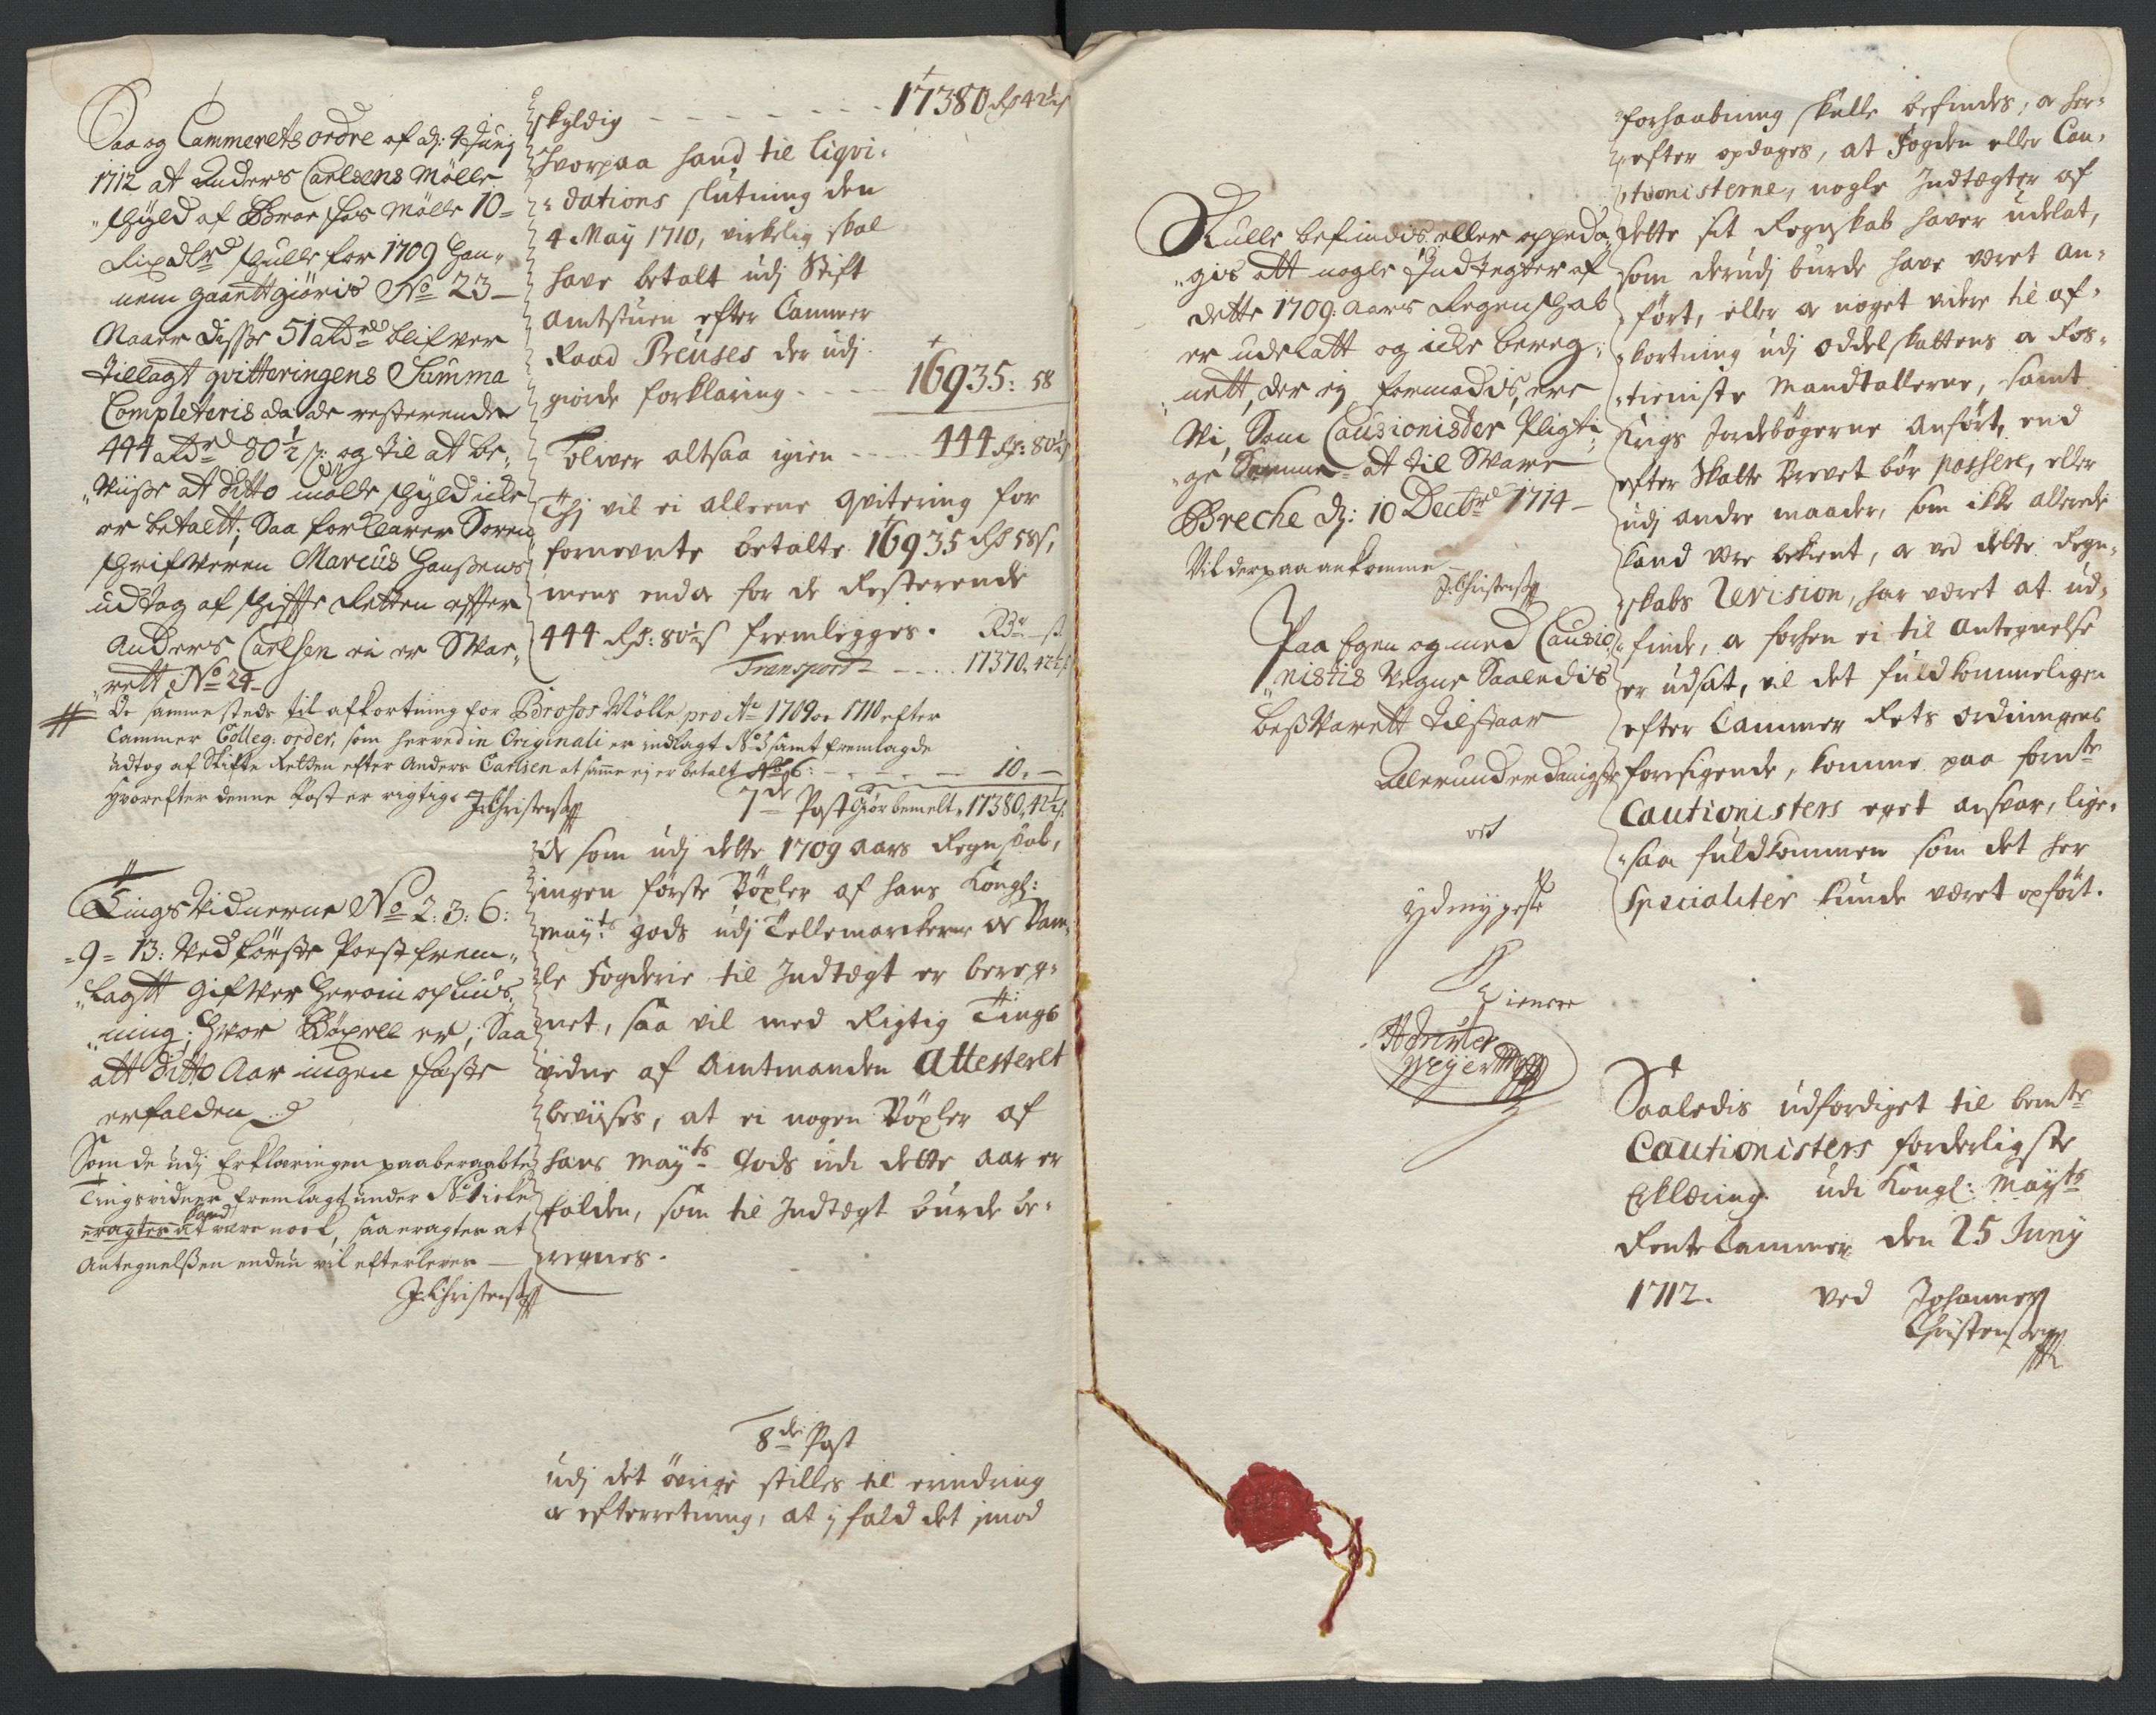 Saa og Cammerets ordre af dj: 4 Junij
1712 at Anders Carlsens Mölle
skyld af Broe fos Mölle 10 =
Rixdlr skulle for 1709 Han„
nem gaattgiöris No 23 —
Naaer disse 51 a Rdr blifver
tillagt qvitteringens Summa
Completeris da de resterende
444 a Rdr 80½ s: og til at be„
„viisse at ditto mölle skyld icke
er betalt, Saa forklarer Soren
skrifveren Marcus Hanssens
udtog af skiffte Retten effter
Anders Carlsen ei er Swa„
„rett No 24 —
# De sammesteds til afkortning for Brofos Mölle pro Ao 1709 oc 1710 efter
Cammer Colleg: order, som herved in Originali er indlagt No 3 samt fremlagde
udtog af Skifte Retten efter Anders Carlsen at samme ej er betalt No 6: — — — 10. —
hvorefter denne Post er rigtig. J: Christensen
# Tings Vidnerne No 2: 3: 6:
= 9 = 13: Ved förste Poest frem„
„lagtt gifver herom oplius„
„ning; hvor Böxell er, Saa
att ditto Aar ingen förste
erfalden
Som de udj Erklæringen paaberaabte
Tingsvidner fremlagt under No 1 icke
eragtes at kand være nock, saa eragtes at
Antegnelssen endnu vil efterleves —
J: Christensen
skyldig — — — — — 17380 Rd 42½ s
Hvorpaa hand til liqvi„
„dations slutning den
4 Maij 1710, virkelig skal
have betalt udj Stift
Amtstuen efter Cammer
Raad Preuses der udj
giorde forklaring — — 16935: 58
Bliver altsaa igien — — 444 Rd: 80½ s
Thj vil ei alleene qvitering for
fornevnte betalte 16935 Rd 58 s,
mens endoc for de Resterende
444 Rd: 80½ s fremlegges. Rdr — s.
Transport — — — 17370. 42½ s
7de Post Giör bemelte 17380. 42½ s.
de som udj dette 1709 aars Regnskab,
ingen förste Böxler af hans Kongl:
Mayts gods udj Tellemarckerne oc Bam„
le Fogderie til Indtegt er bereg„
net, saa vil med Rigtig Tings
vidne af Amtmanden Attesteret
beviises, at ei nogen Böxler af
hans Mayts Gods udi dette aar er
falden, som til Indtegt burde be„
regnes.
8de Post
udj det övrige stilles til erindring
oc efterretning, at i fald det imod
Skulle befindis eller oppeda„
„gis att nogle Indtegter af
dette 1709: aars Regenskab
er udelatt og icke bereg„
nett, der ej formodis, ere
Vi, Som Causionister Pligti„
ge Samme at til Svare
Breche dj: 10 Decbr 1714 —
Vil derpaa ankomme —
J: Christensen
Paa Egen og med Causio„
„nistis Vegne Saaledis
beszvarett tilstaar
Allerunderdanigste
oc
ydmygeste
Tienere
forhaabning skulle befindes, oc her„
efter opdages, at Fogden eller Cau„
tionisterne, nogle Indtægter af
dette sit Regnskab haver udelat,
som derudj burde have været an„
„fört, eller oc noget videre til af„
„kortning udj Oddelskattens oc Ros„
„tieniste Mandtallerne, samt
Krigs Jordebögerne anfört, end
efter Skatte Brevet bör passere, eller
udj andre maader, som ikke allerede
kand være bekient, oc ved dette Regn„
„skabs Revision, har været at ud„
„finde, oc forhen ei til Antegnelse
er udsat, vil det fuldkommeligen
efter Cammer Rets Ordningens
foresigende, komme paa fornte
Cautionisters eget ansvar, lige„
„saa fuldkommen som det her
Specialiter kunde været opfört.
Saaledis udferdiget til bemte
Cautionisters forderligste
Erklæring. udi Kongl: Mayts
Rente Cammer den 25 Junij
1712. ved Johannes
Christensen